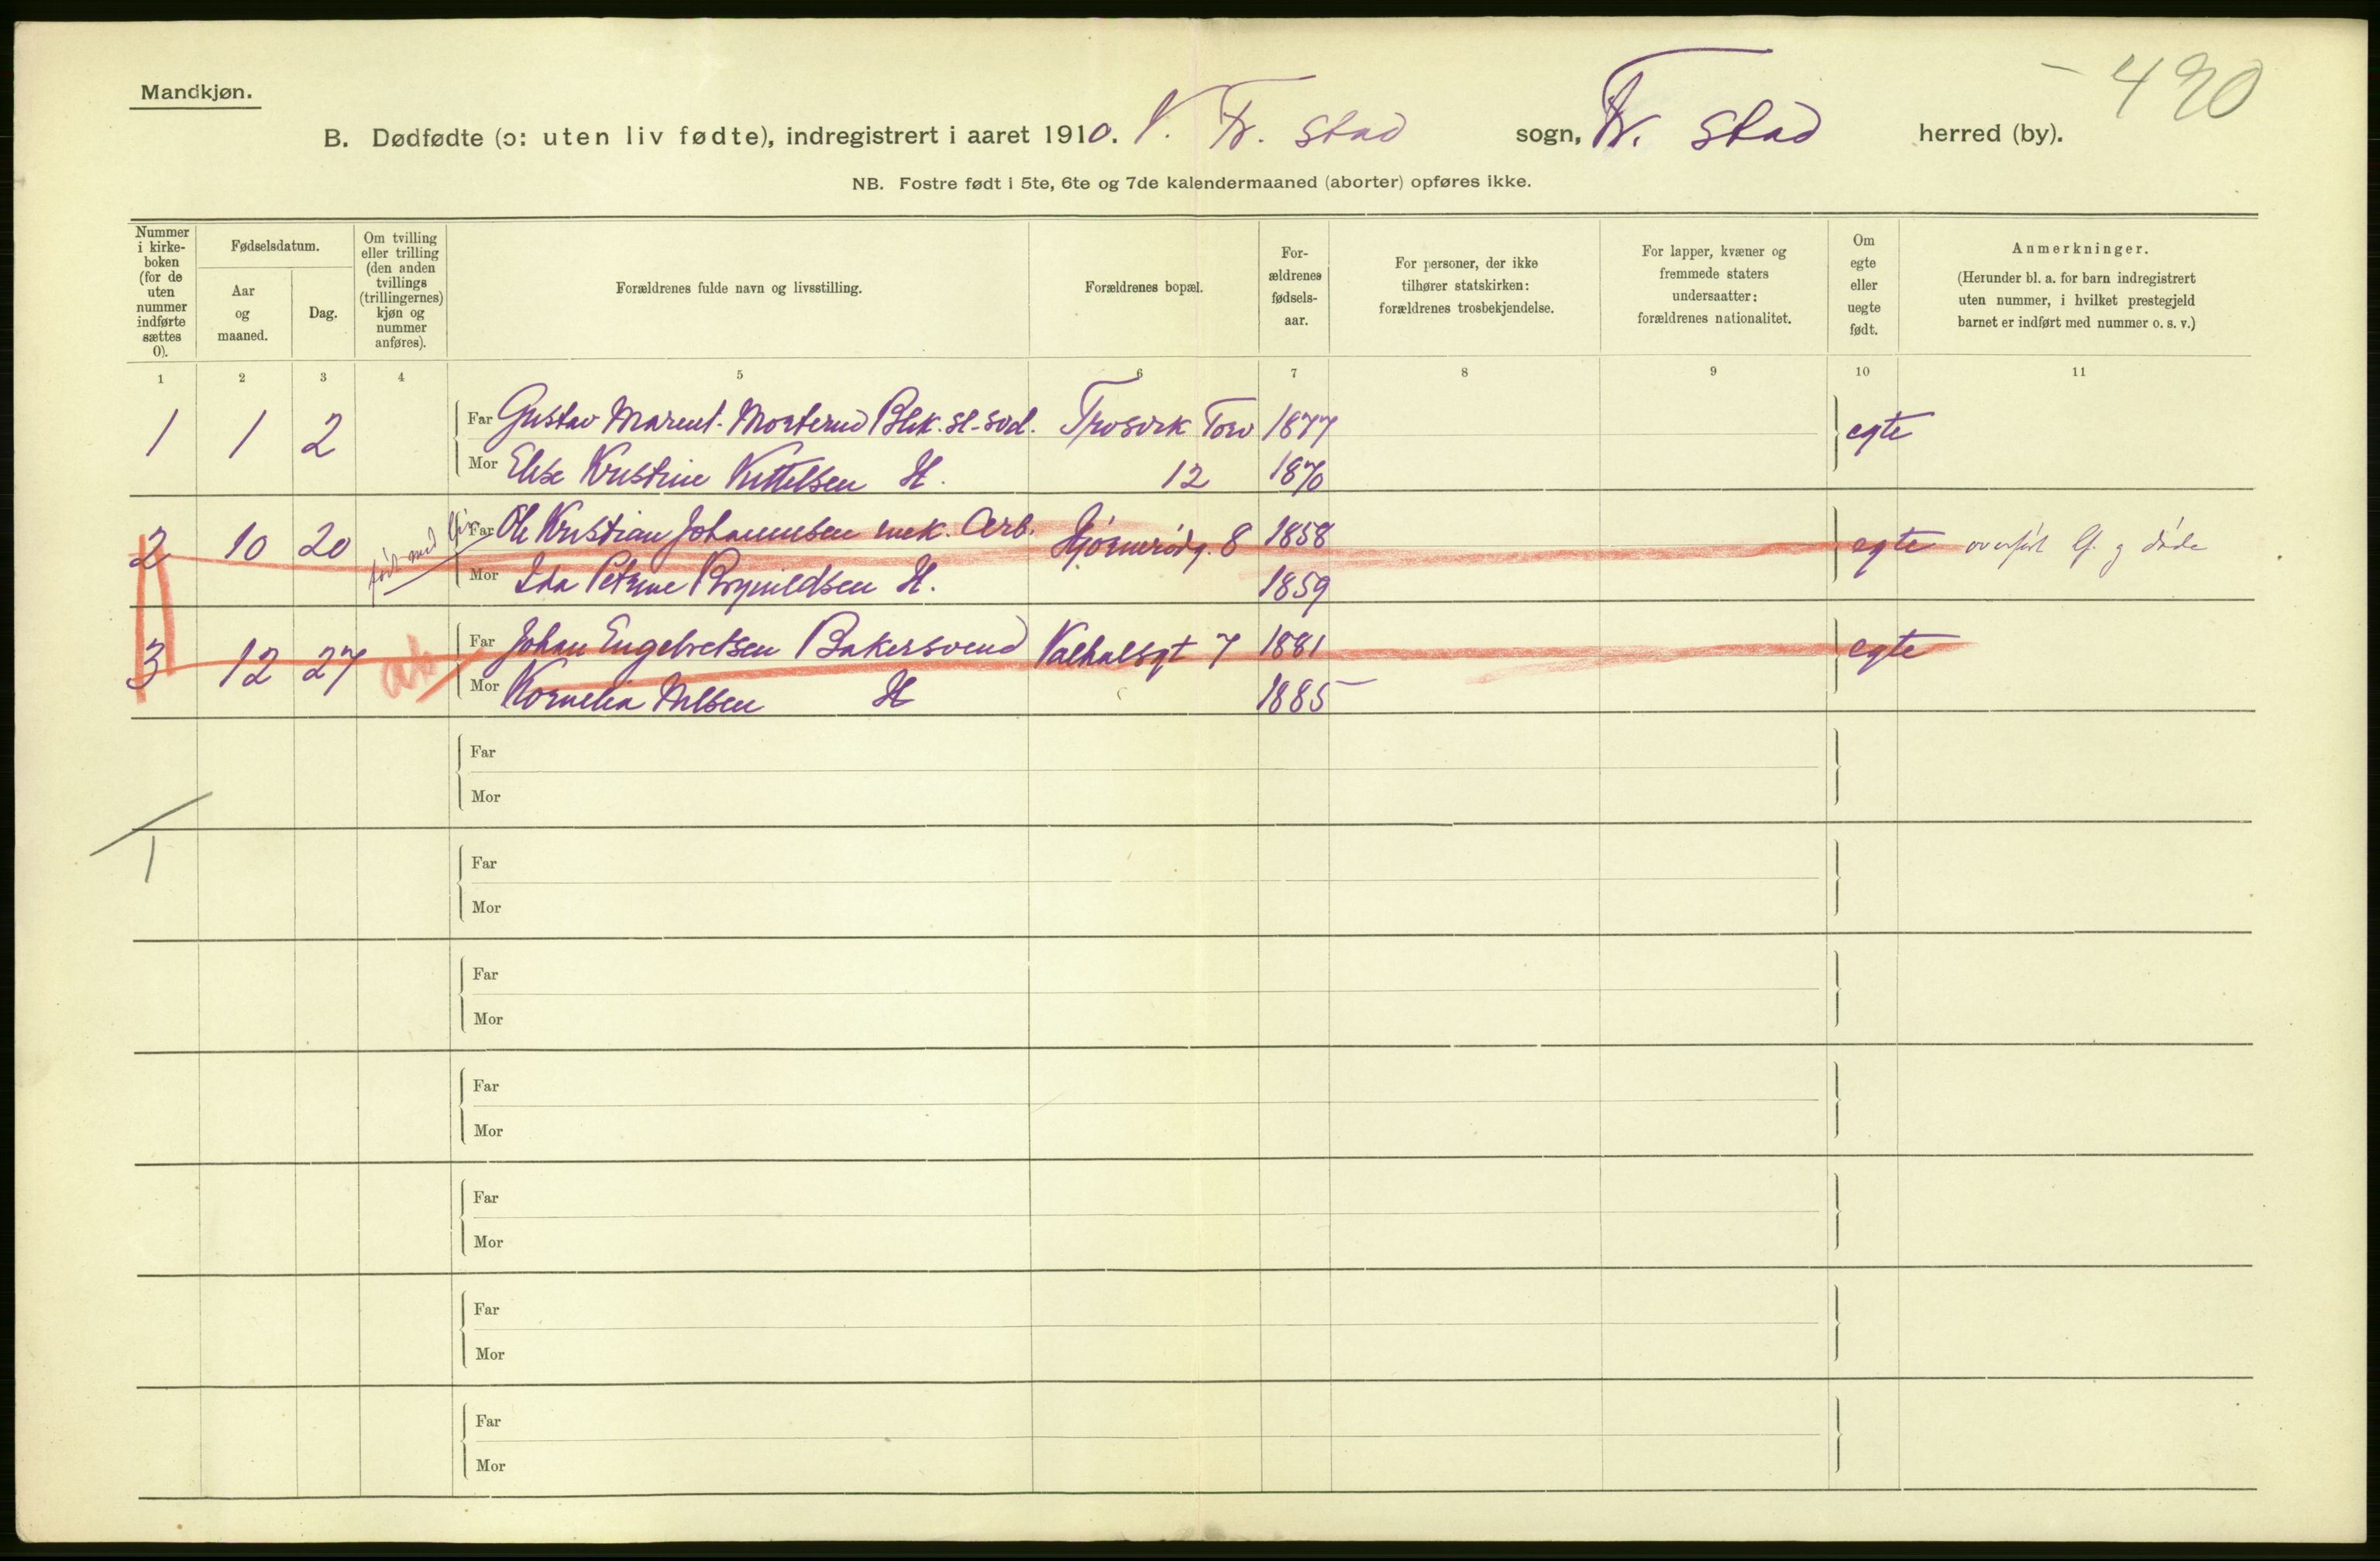 Mandkjøn.
- 490
B. Dødfødte (ɔ: uten liv fødte), indregistrert i aaret 1910. V. Fr. stad sogn, Fr. stad herred (by).
NB. Fostre født i 5te, 6te og 7de kalendermaaned (aborter) opføres ikke.
Nummer i kirke-boken (for de uten nummer indførte sættes 0).
Fødselsdatum.
Aar og maaned.
Dag.
Om tvilling eller trilling (den anden tvillings (trillingernes) kjøn og nummer anføres).
Forældrenes fulde navn og livsstilling.
Forældrenes bopæl.
For-ældrenes fødsels-aar.
For personer, der ikke tilhører statskirken: forældrenes trosbekjendelse.
For lapper, kvæner og fremmede staters undersaatter: forældrenes nationalitet.
Om egte eller uegte født.
Anmerkninger.
(Herunder bl. a. for barn indregistrert uten nummer, i hvilket prestegjeld barnet er indført med nummer o. s. v.)
1 2 3 4 5 6 7 8 9 10 11
1 1 2 Far Gustav Morterud Blik. sl. Trosvik Torv 1877 egte
Mor Elise Kristine Kittelsen H. 12 1870
2 10 20 født med liv Far Ole Kristian Johannesen mek. Arb. 8 1858 egte overført lf. g døde
Mor Ida Petrine Brynildsen H. 1859
3 12 27 ab Far Johan Engebretsen Bakersvend Valhalsgt 7 1881 egte
Mor Kornelia Nilsen H 1885
Far
Mor
1
Far
Mor
Far
Mor
Far
Mor
Far
Mor
Far
Mor
Far
Mor